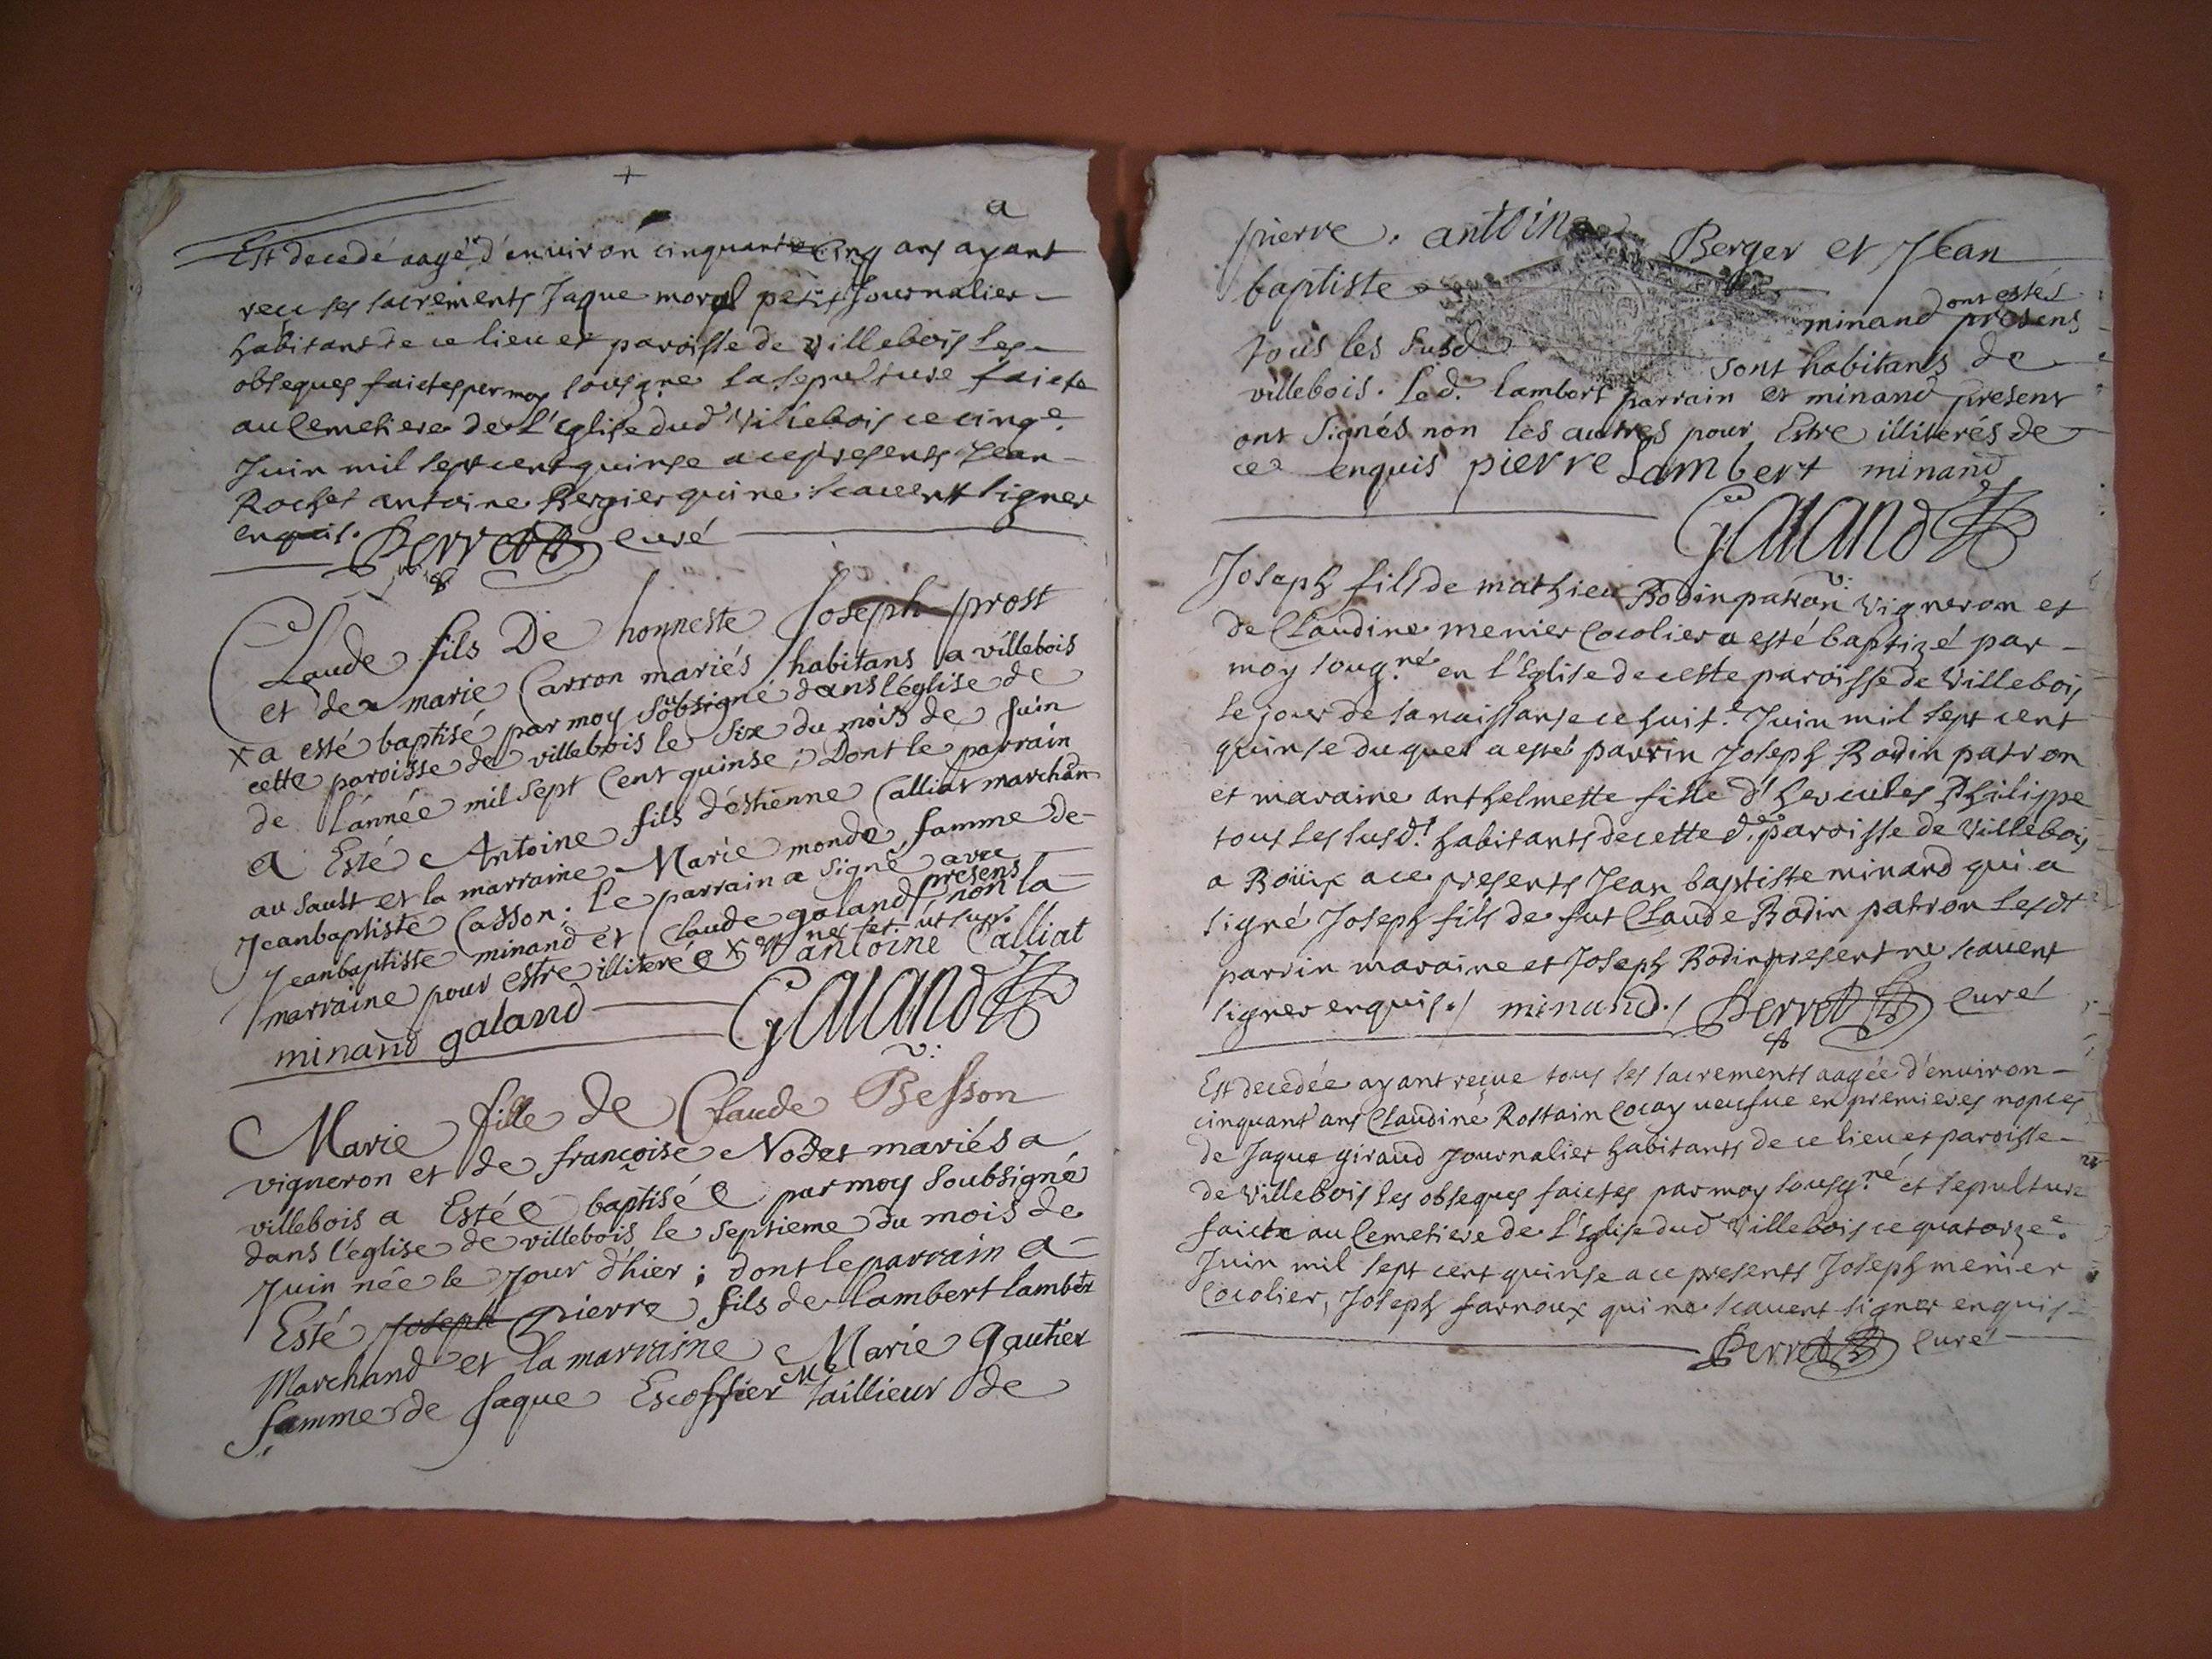 a
Est decedé aagé d'environ cinquante cinq ans ayant
recu ses sacrements Jaque morel petit Journalier
habitant de ce lieu et paroisse de Villebois les
obseques faictes par moy sousigné la sepulture faicte
au Cemetiere de L'Eglise dud Villebois ce cinqe
Juin mil sept cent quinse a ce presents Jean
Rochet antoine Bergier qui ne scavent signer
enquis. Perret curé
Claude fils De honneste Joseph prost
et de marie Carron mariés habitans a villebois
x a esté baptisé par moy soubsigné dans l'église de
cette paroisse de villebois le six du mois de Juin
de l'année mil sept Cent quinse ; Dont le parrain
a Esté Antoine fils d'estienne Calliat marchan
au sault et la marraine Marie monde famme de
Jeanbaptiste Casson ; Le parrain a signé avec
Jeanbaptiste minand et Claude galand presens non la
marraine pour estre illiterée x et né led. ut supr. antoine Calliat
minand galand Galand
Marie fille de Claude Besson v:
vigneron et de françoise Nodet mariés a
villebois a Estée baptisée par moy soubsigné
dans l'église de villebois le septieme du mois de
Juin née le Jour d'hier ; dont le parrain a
Esté Joseph Pierre fils de lambert lambert
Marchand et la marraine Marie gautier
famme de Jaque Escoffier Me taillieur de
pierre . antoine Berger et Jean
baptiste minand dont estés presens
tous les susd sont habitans de
villebois. Led. lambert parrain et minand present
ont signés non les autres pour Estre illiterés de
ce enquis pierre Lambert minand
Galand
Joseph fils de mathieu Bodin patron v: vigneron et
de Claudine menier Cocolier a esté baptizé par
moy sougné en l'Eglise de ceste paroisse de Villebois
le jour de sa naissanse ce huit.e Juin mil sept cent
quinse duquel a esté parrin Joseph Bodin patron
et maraine anthelmette fille d'hercules Philippe
tous les susdt habitants de cette d.te paroisse de Villebois
a Boüix a ce presents Jean baptiste minand qui a
signé Joseph fils de fut Claude Bodin patron lesdt
parrin maraine et Joseph Bodin present ne scavent
signer enquis./ minand./ Perret Curé
Est decedée ayant reçue tous ses sacrements aagée d'environ
cinquant' ans Claudine Rostain Cocay veufue en premieres nopces
de Jaque giraud Journalier habitants de ce lieu et paroisse
de Villebois les obseques faictes par moy sousgné et sepulture
faicte au Cemetiere de L'Eglise dud Villebois ce quatorze.e
Juin mil sept cent quinse a ce presents Joseph menier
Cocolier, Joseph farnoux qui ne scavent signer enquis
Perret Curé